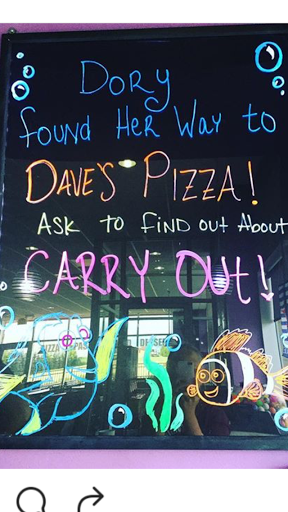 DORY
found Her Way to
DAVE'S PIZZA!
ASK to find out About
CARRY OUT!